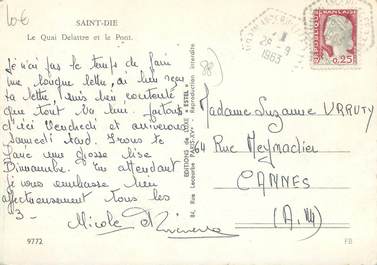 10€
SAINT-DIE
Le Quai Delattre et le Pont.
Je n'ai pas le temps de faire
une longue lettre, ai bien reçu
ta lettre, suis bien contente
que tout va bien. Partons
d'ici Vendredi et arriverons
samedi tard. Irons te
faire une grosse bise
Dimanche. En attendant
je vous embrasse bien
affectueusement tous les
3 -
Nicole et
9772
EDITIONS de LUXE "ESTEL"
84, Rue Lecourbe PARIS-XV
Reproduction interdite
88
26 -9
1963
REPUBLIQUE FRANÇAISE
0,25
Madame Suzanne URRUTY
64 Rue Meynadier
CANNES
(A.M)
FB